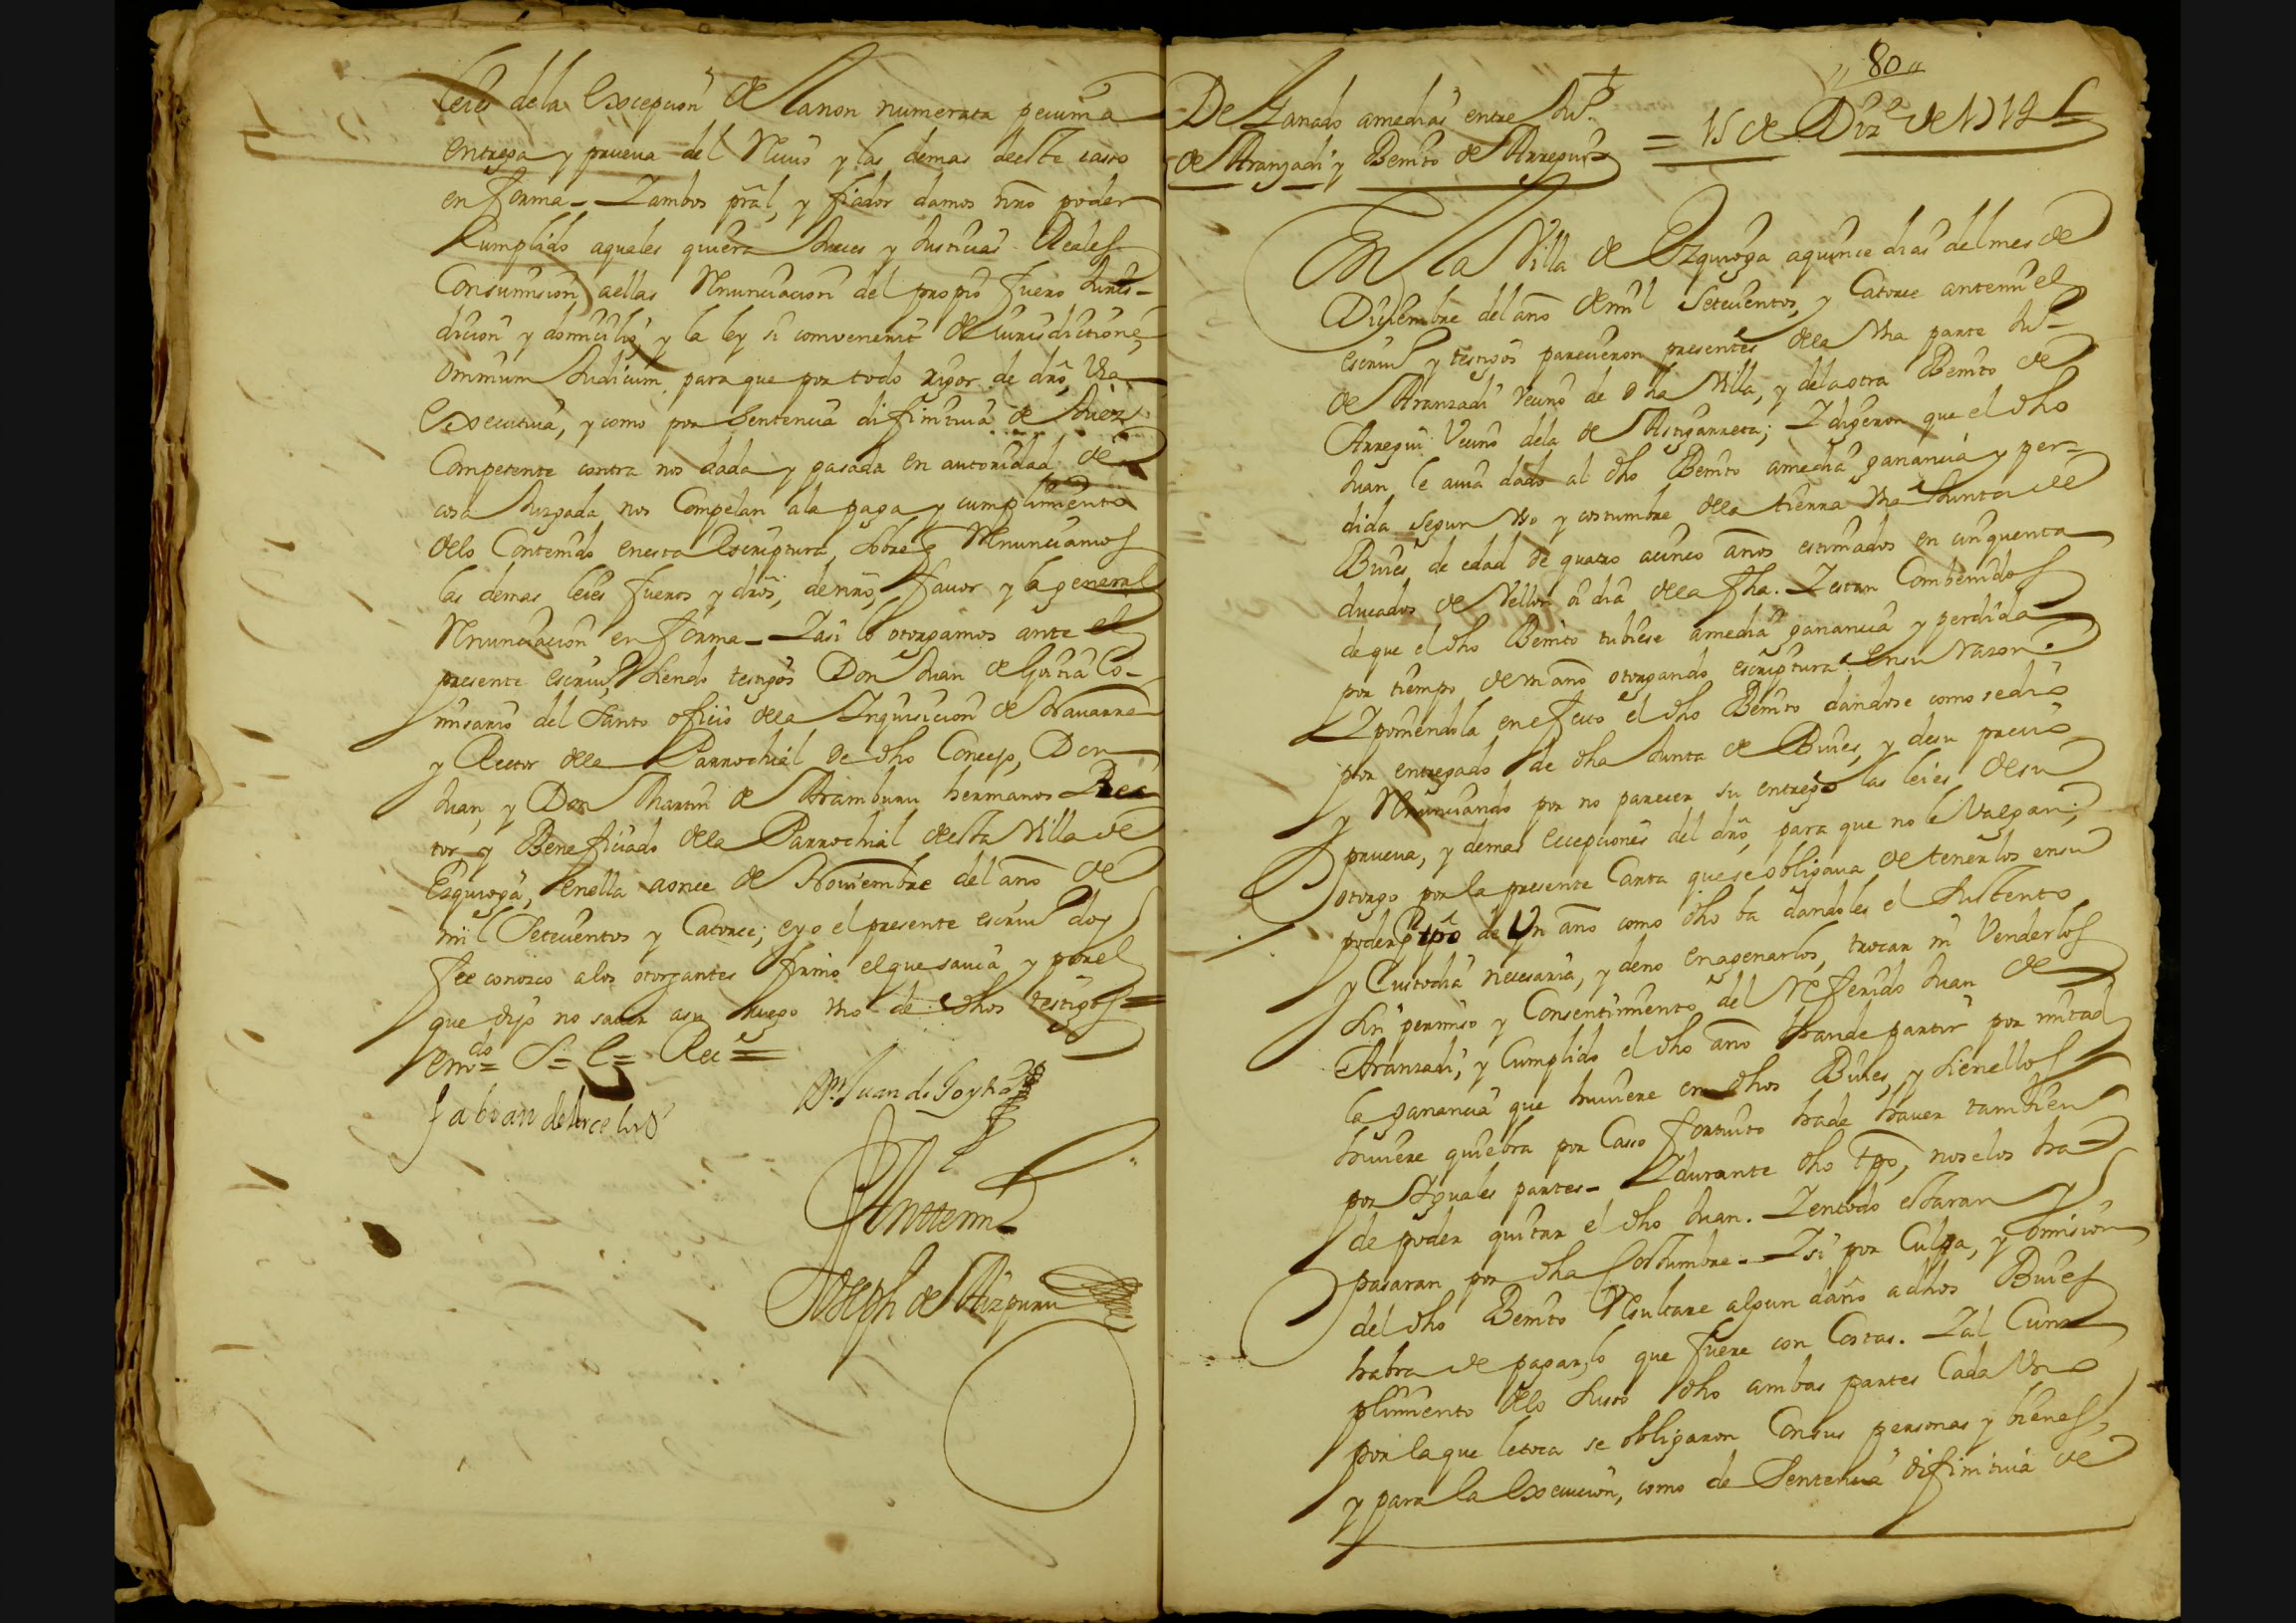 leies dela excepcion de la non numerata pecunia
entrega y prueva del recivo y las demas deeste caso
en forma - Y ambos pral, y fiador damos nro poder
Cumplido aquales quiera Jueces y Justicias Reales
Consumision aellas renunciacion del propio fuero Juris-
dicion y domicilio, y la ley si convenerit de iurisdictione
omnium Judicum para que por todo rigor de dro, via
executiva, y como por Sentencia difinitiva de Juez
Competente contra nos dada y pasada en autoridad de
cosa Juzgada nos Compelan ala paga y cumplimiento
delo Contenido enesta escriptura, sobre q renunciamos
las demas leies fueros y dros, de nro, favor y la general
renunciacion en forma - Y asi lo otorgamos ante el
presente escriv. Siendo testigos Don Juan de Goitia Co-
misario del Santo oficio dela Inquisicion de Navarra
y Rector dela Parrochial de dho Concejo, Don
Juan, y Don Martin de Aramburu hermanos Rec
tor y Beneficiado dela Parrochial desta Villa de
Ezquioga, enella aonce de Noviembre del año de
mil Setecientos y Catorce; eyo el presente escriv. doy
fee conozco alos otorgantes firmo elque savia y porel
que dijo no saver asu ruego vno de dhos testigos =
em.do = S = l = Rec =
Dn Juan de Goytia
Fabian de
Antemi
Joseph de Aizpuru
80
De Ganado amedias entre Ju.
de Aranzadi y Benito de Arregui
= 15 de Diz.e de 1714
En la Villa de Ezquioga aquince dias del mes de
Diciembre del año demil Setecientos, y Catorce antemi el
escriv. y testigos parecieron presentes dela vna parte Ju.
de Aranzadi vecino de dha Villa, y dela otra Benito de
Arregui Vecino dela de Astigarreta; Y digeron que el dho
Juan le avia dado al dho Benito amedia ganancia y per-
dida segun vso y costumbre dela tierra vna Junta de
Bueies de edad de quatro acinco años estimados en cinquenta
ducados de Vellon oi dia dela fha. Y estan Combenidos
de que el dho Benito tubiese amedia ganancia y perdida
por tiempo de vn año otorgando escriptura ensu razon.
Y poniendola enefecto el dho Benito dandose como sedio
por entregado de dha Junta de Bueies, y desu precio
y renunciando por no parecer su entrego las leies desu
prueva, y demas excepciones del dro, para que no le Valgan;
otorgo por la presente Carta que se obligava de tenerlos ensu
poder p. tpo de Un año como dho ba dandoles el Sustento
y Custodia necesaria, y deno enagenarlos, trocar ni Venderlos
Sin permiso y Consentimiento del referido Juan de
Aranzadi, y Cumplido el dho año hande partir por mitad
la ganancia que huviere en dhos Bueies, y Sienellos
huviere quiebra por Caso fortuito hade haver tambien
por Yguales partes - Y durante dho tpo, noselos ha
de poder quitar el dho Juan. Y entodo estaran y
pasaran por dha Costumbre - Y si por Culpa, y omision
del dho Benito resultare algun daño a dhos Bueies
habra de pagar, lo que fuere con Costas. Y al Cum
plimiento delo Suso dho ambas partes Cada Vno
por laque letoca se obligaron Consus personas y bienes,
y para la execucion, como de Sentencia difinitiva de